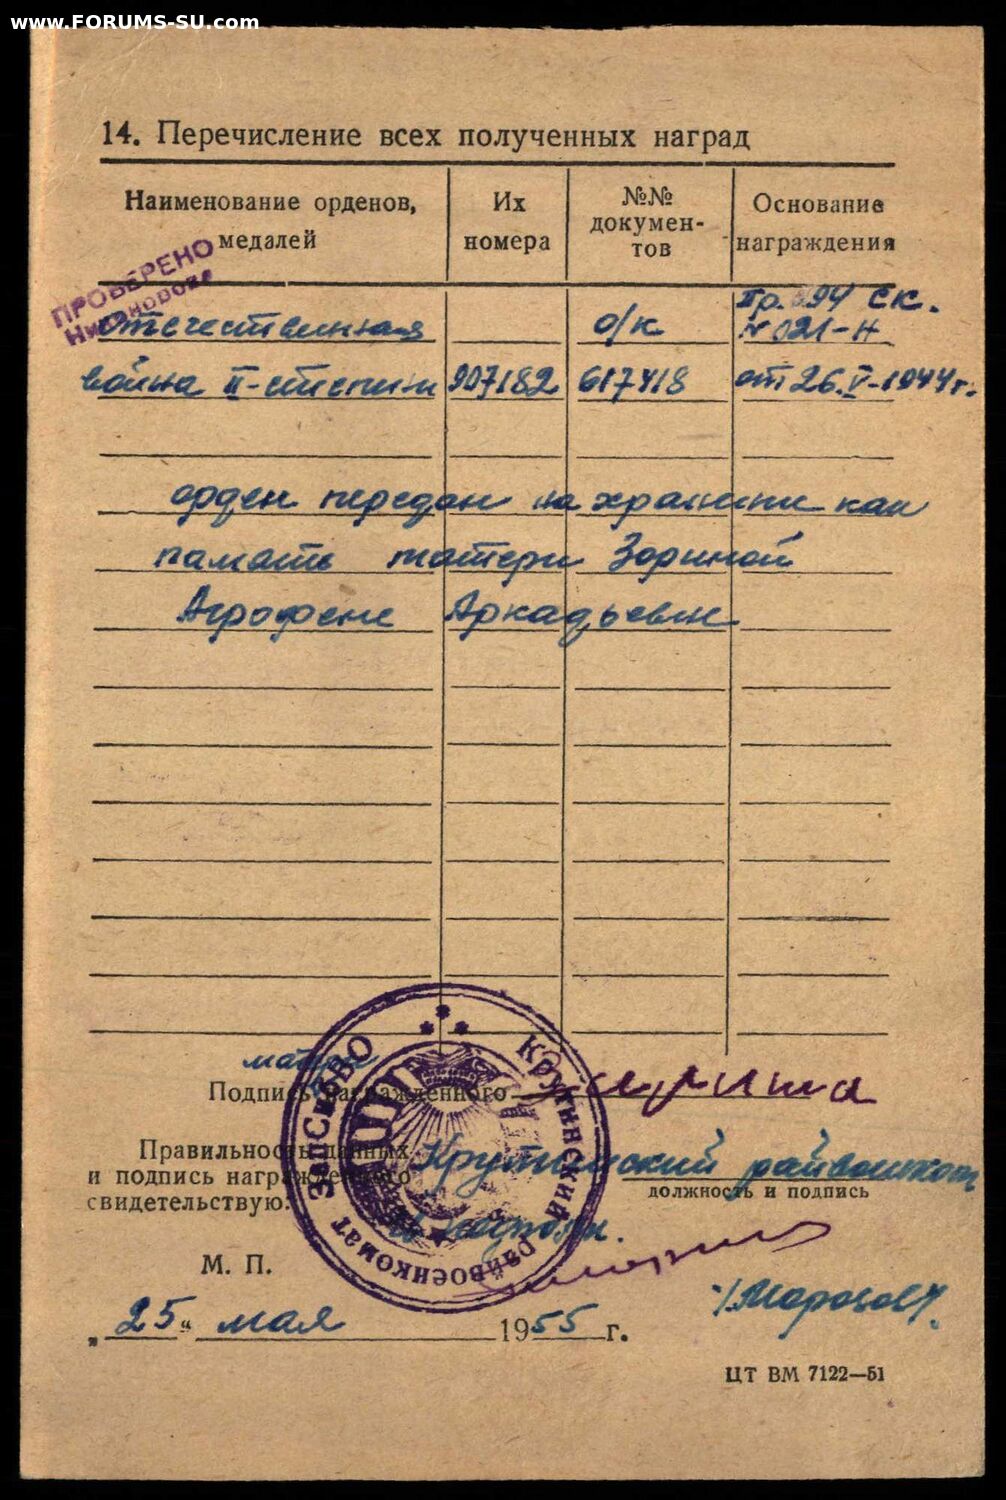 www.FORUMS-SU.com
14. Перечисление всех полученных наград
Наименование орденов, медалей
Их номера
№№ документов
Основание награждения
ПРОВЕРЕНО
Отечественная о/к Пр. 94 СК. № 021-Н
война II-степени 907182 617418 от 26.V-1944г.
орден передан на хранение как
память матери Зориной
Агрофене Аркадьевне
матери
Подпись награжденного
Правильность данных
и подпись награжденного
свидетельствую.
Крутинский райвоенком
должность и подпись
М. П.
Морозов
„25“ мая 1955 г.
ЦТ ВМ 7122—51
Крутинский райвоенкомат ЗапСибВО